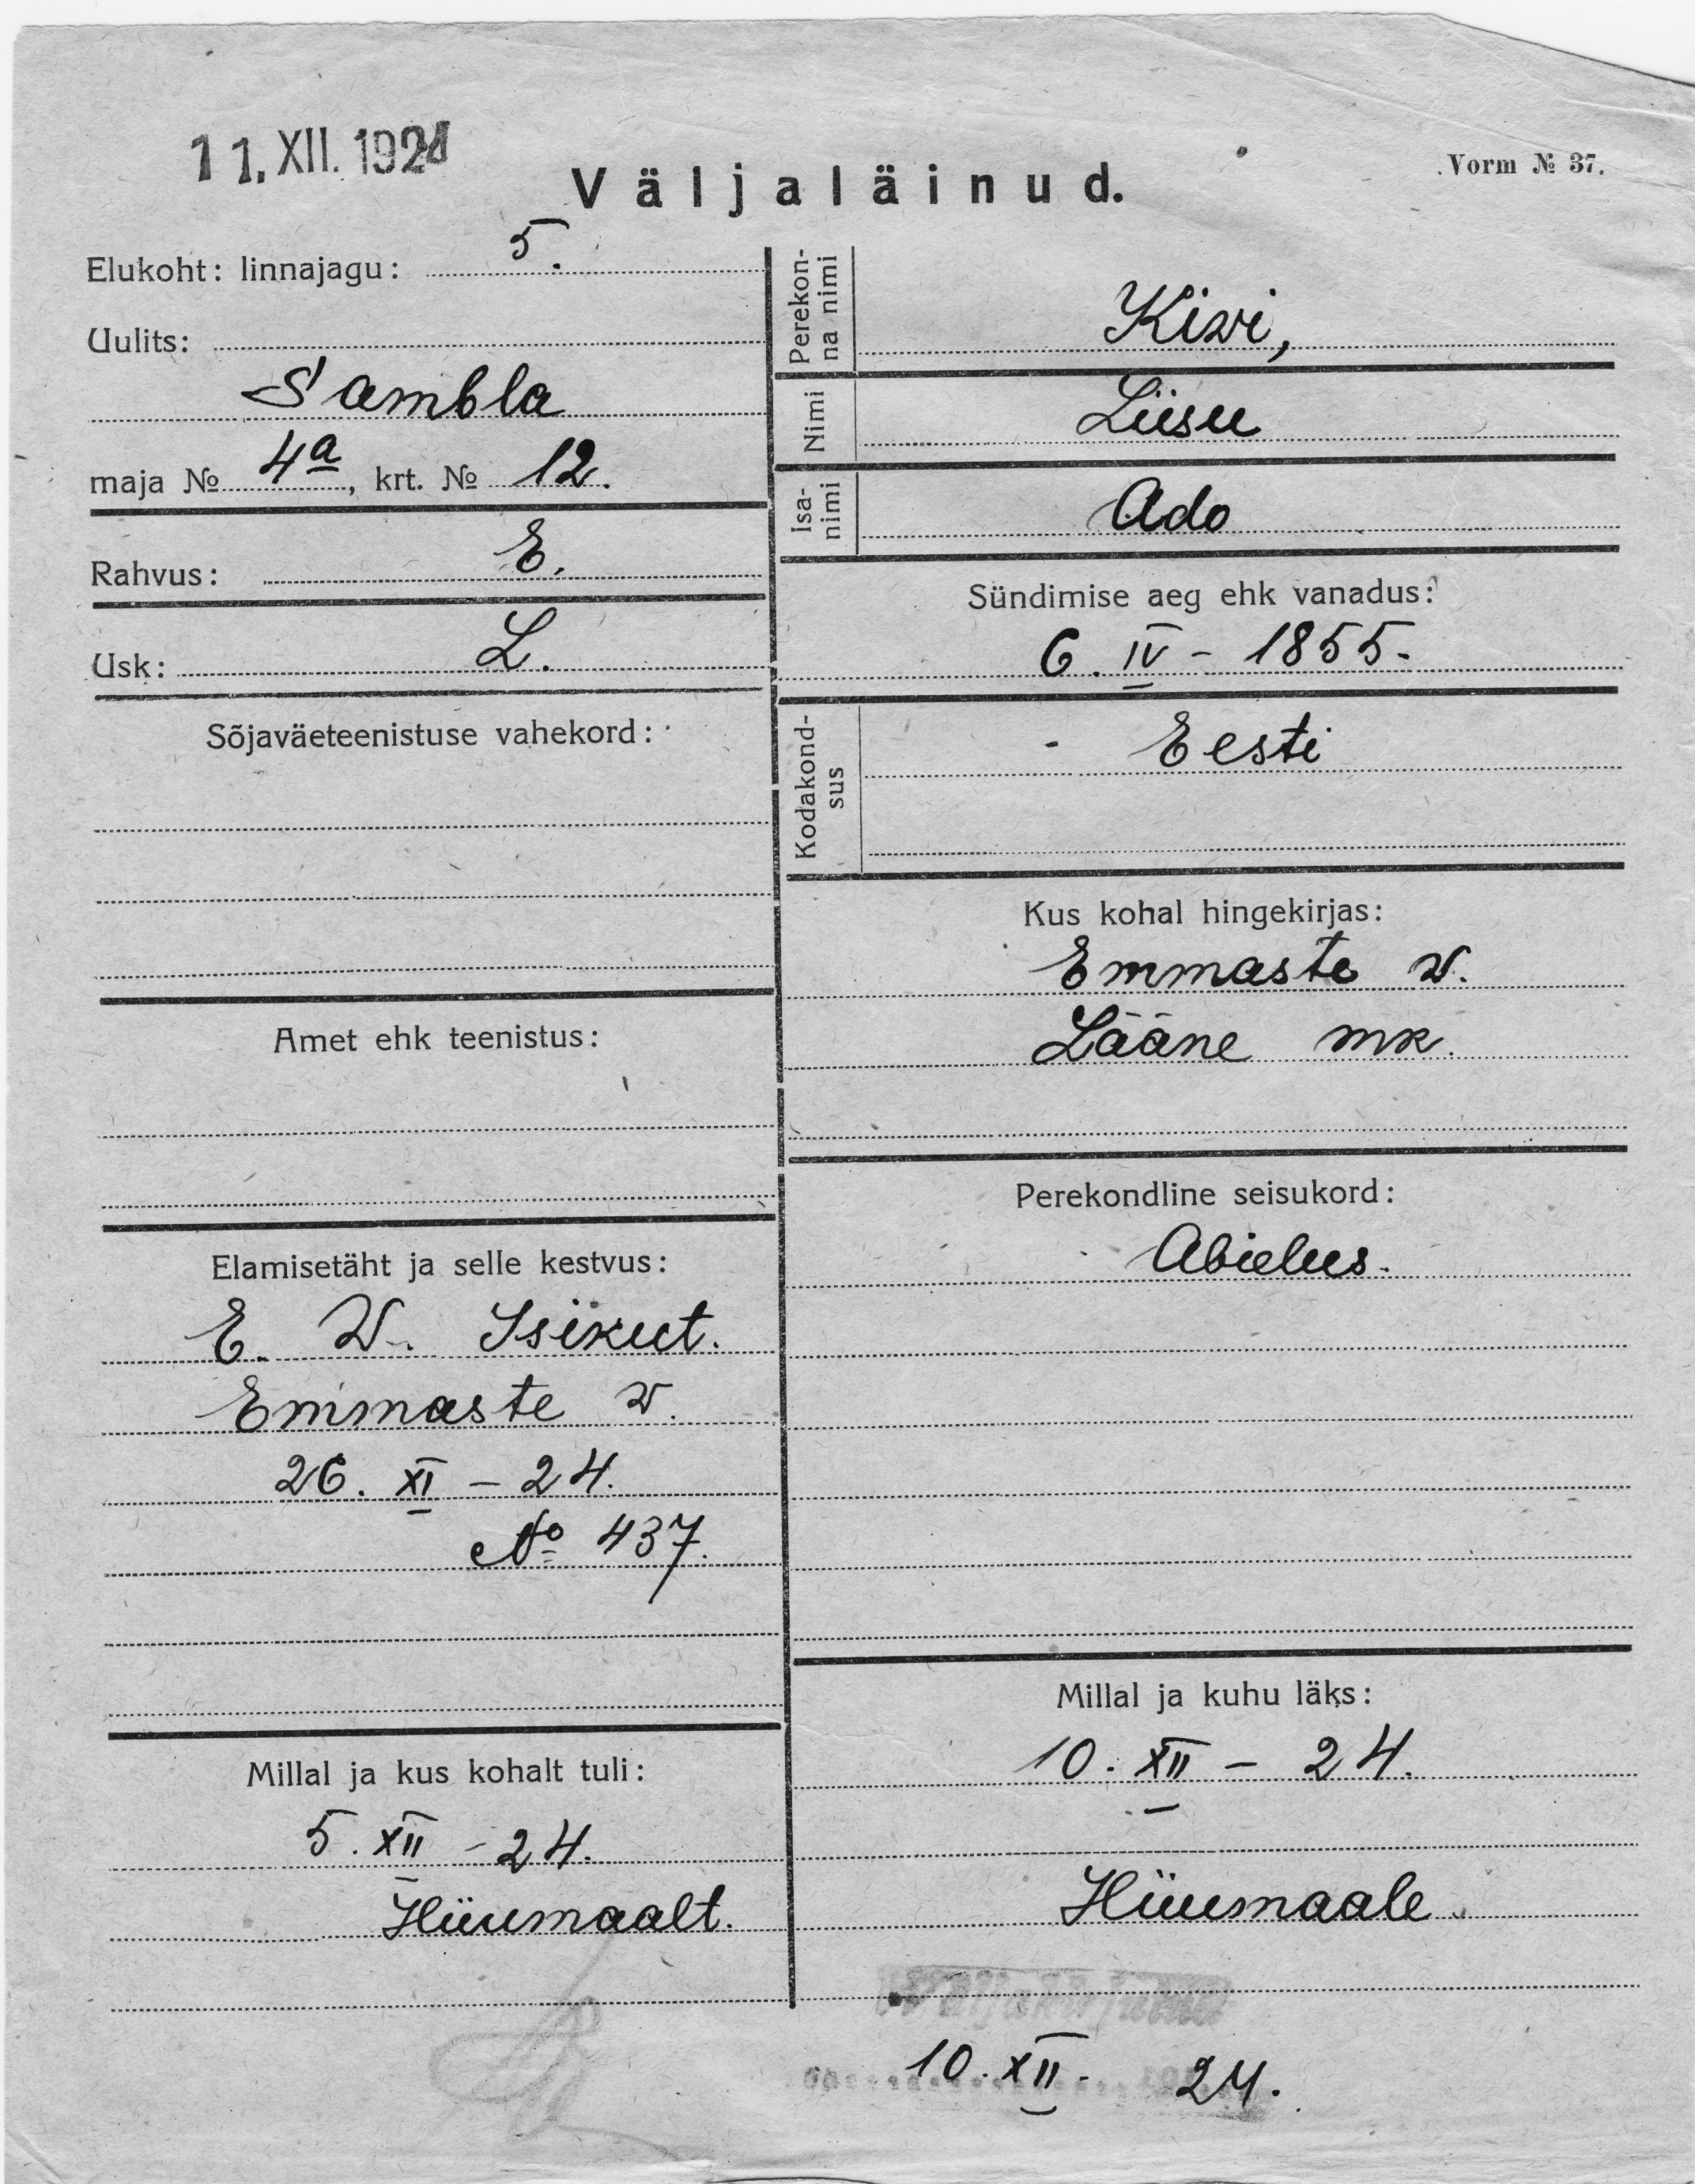 11. XII. 1924
Vorm № 37.
Väljaläinud.
Elukoht: linnajagu: 5.
Uulits:
Sambla
maja № 4a, krt. № 12.
Rahvus: E.
Usk: L.
Sõjaväeteenistuse vahekord:
Amet ehk teenistus:
Elamisetäht ja selle kestvus:
E. W. Isikut.
Emmaste w.
26. XI – 24.
№ 437.
Millal ja kus kohalt tuli:
5. XII – 24.
Hiiumaalt.
Perekon-
na nimi
Kiwi,
Nimi
Liisu
Isa-
nimi
Ado
Sündimise aeg ehk vanadus:
6. IV – 1855.
Kodakond-
sus
Eesti
Kus kohal hingekirjas:
Emmaste w.
Lääne mk.
Perekondline seisukord:
Abielus.
Millal ja kuhu läks:
10. XII – 24.
Hiiumaale
10. XII. 24.